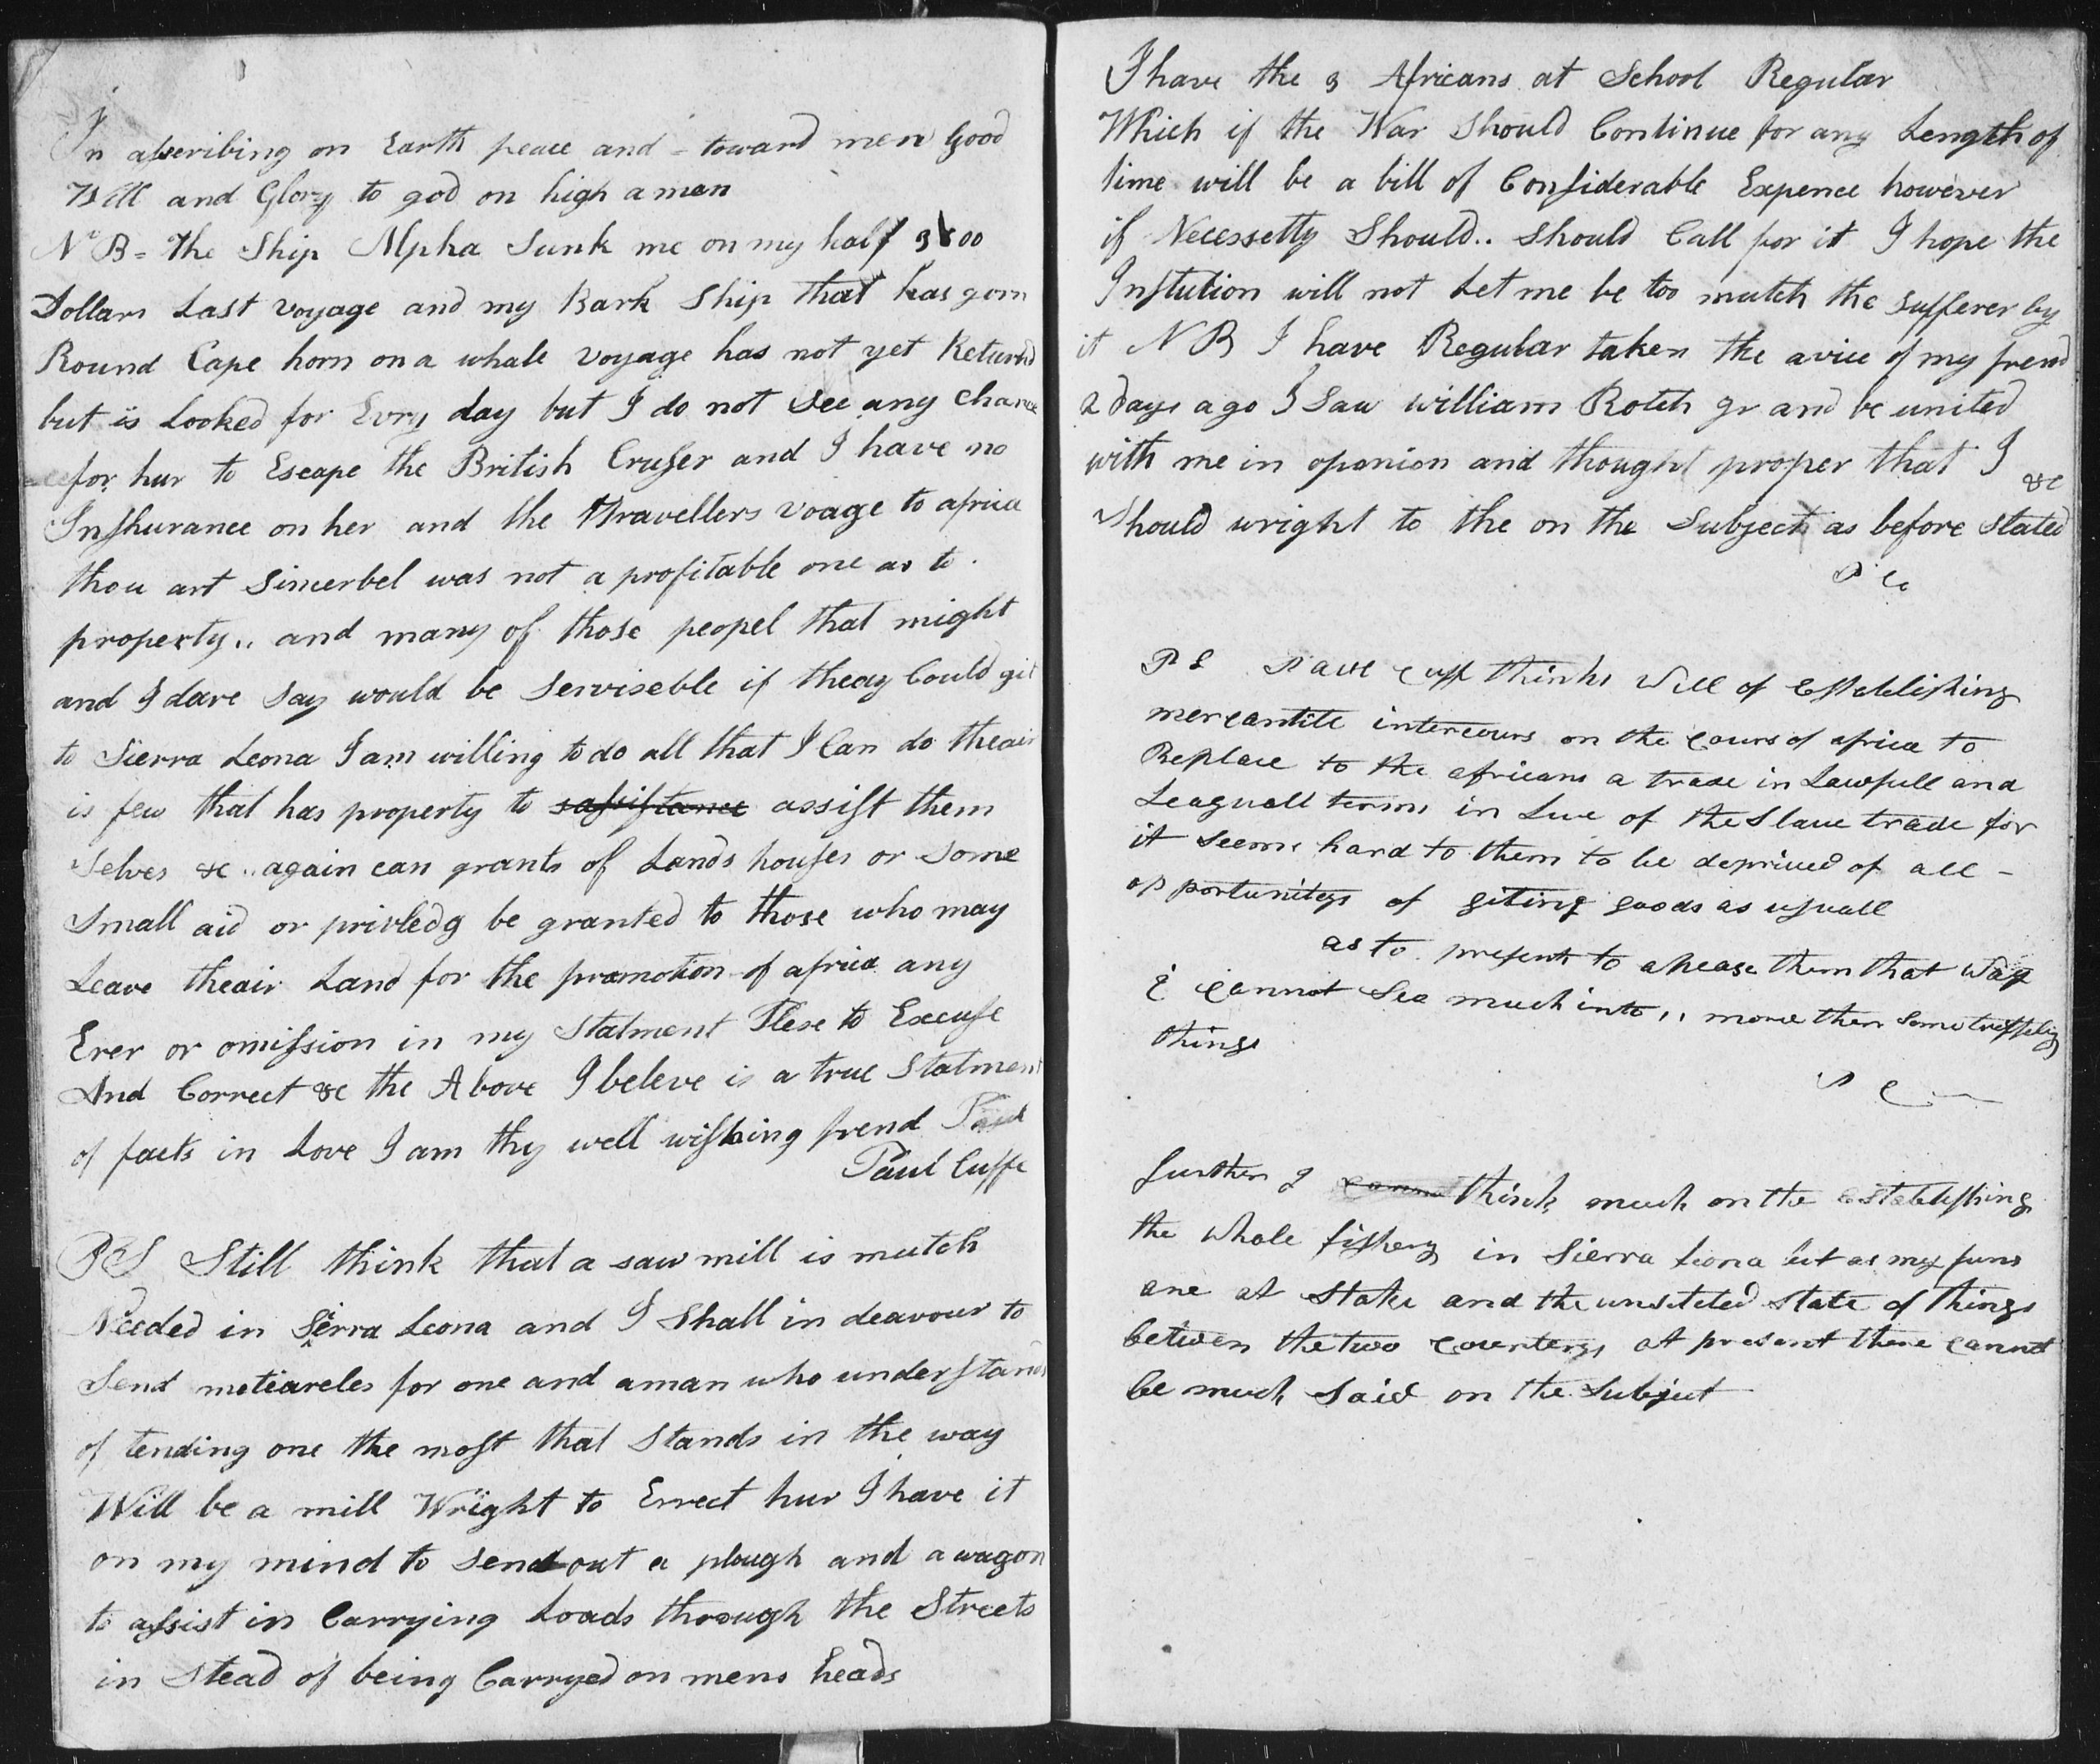 In asscribing on Earth peace and - toward men Good
Will and Glory to god on high a men
No B = The Ship Alpha Sunk me on my half 3800
Dollars Last voyage and my Bark Ship that has gorn
Round Cape horn on a whale voyage has not yet Returnd
but is Looked for Evry day but I do not See any chance
for hur to Escape the British Cruser and I have no
Inshurance on her and the Travellers voage to africa
thou art Simerbel was not a profitable one as to
property,, and many of those peopel that might
and I dare Say would be Serviseble if theay Could git
to Sierra Leona I am willing to do all that I Can do theair
is few that has property to assistance assist them
Selves &c .. again can grants of Lands houses or Some
Small aid or privledg be granted to those who may
Leave theair Land for the promotion of africa any
Erer or omission in my Statment Plese to Excuse
And Correct &c the Above I beleve is a true Statment
of facts in Love I am thy well wishing frend Paul
Paul Cuffe
PS Still think that a saw mill is mutch
Needed in Sierra Leona and I Shall in deavour to
Send meteareles for one and a man who understands
of tending one the most that Stands in the way
Will be a mill Wright to Errect hur I have it
on my mind to Send out a plough and a wagon
to assist in Carrying Loads through the Streets
in Stead of being Carryed on mens heads
I have the 3 Africans at School Regular
Which if the War Should Continue for any Length of
time will be a bill of Considerable Expence however
if Necessetty Should.. Should Call for it I hope the
Instution will not Let me be too mutch the Sufferer by
it NB I have Regular taken the avice of my frend
2 days ago I Saw William Rotch gr and he united
with me in oponion and thought proper that I
Should wright to the on the Subject as before Stated &c
P C
PS Paul Cuff thinks Well of Establishing
mercantile intercours on the cours of africa to
Replace to the africans a trade in Lawfull and
Leaguall terms in Lue of the Slave trade for
it Seems hard to them to be deprived of all -
opportunitys of giting goods as usuall
as to presents to apease them that way
i cannot See much into,, more then Some triffeling
things
P C
further I canno think much on the establishing
the whale fishery in Sierra Leona but as my funs
are at Stake and the unseteled State of things
betwen the two counterys at present there cannot
be much Said on the Subject